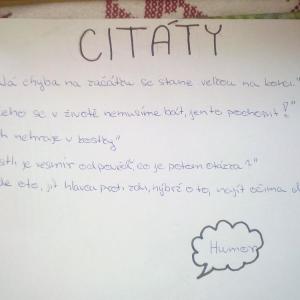 CITÁTY
lá chyba na začátku se stane velkou na konci."
čeho se v životě nemusíme bát, jen to pochopit!"
h nehraje v kostky"
stli je vesmír odpověď, co je potom otázka?"
de o to, jít hlavou proti zdi, nýbrž o to, najít očima d
Humor